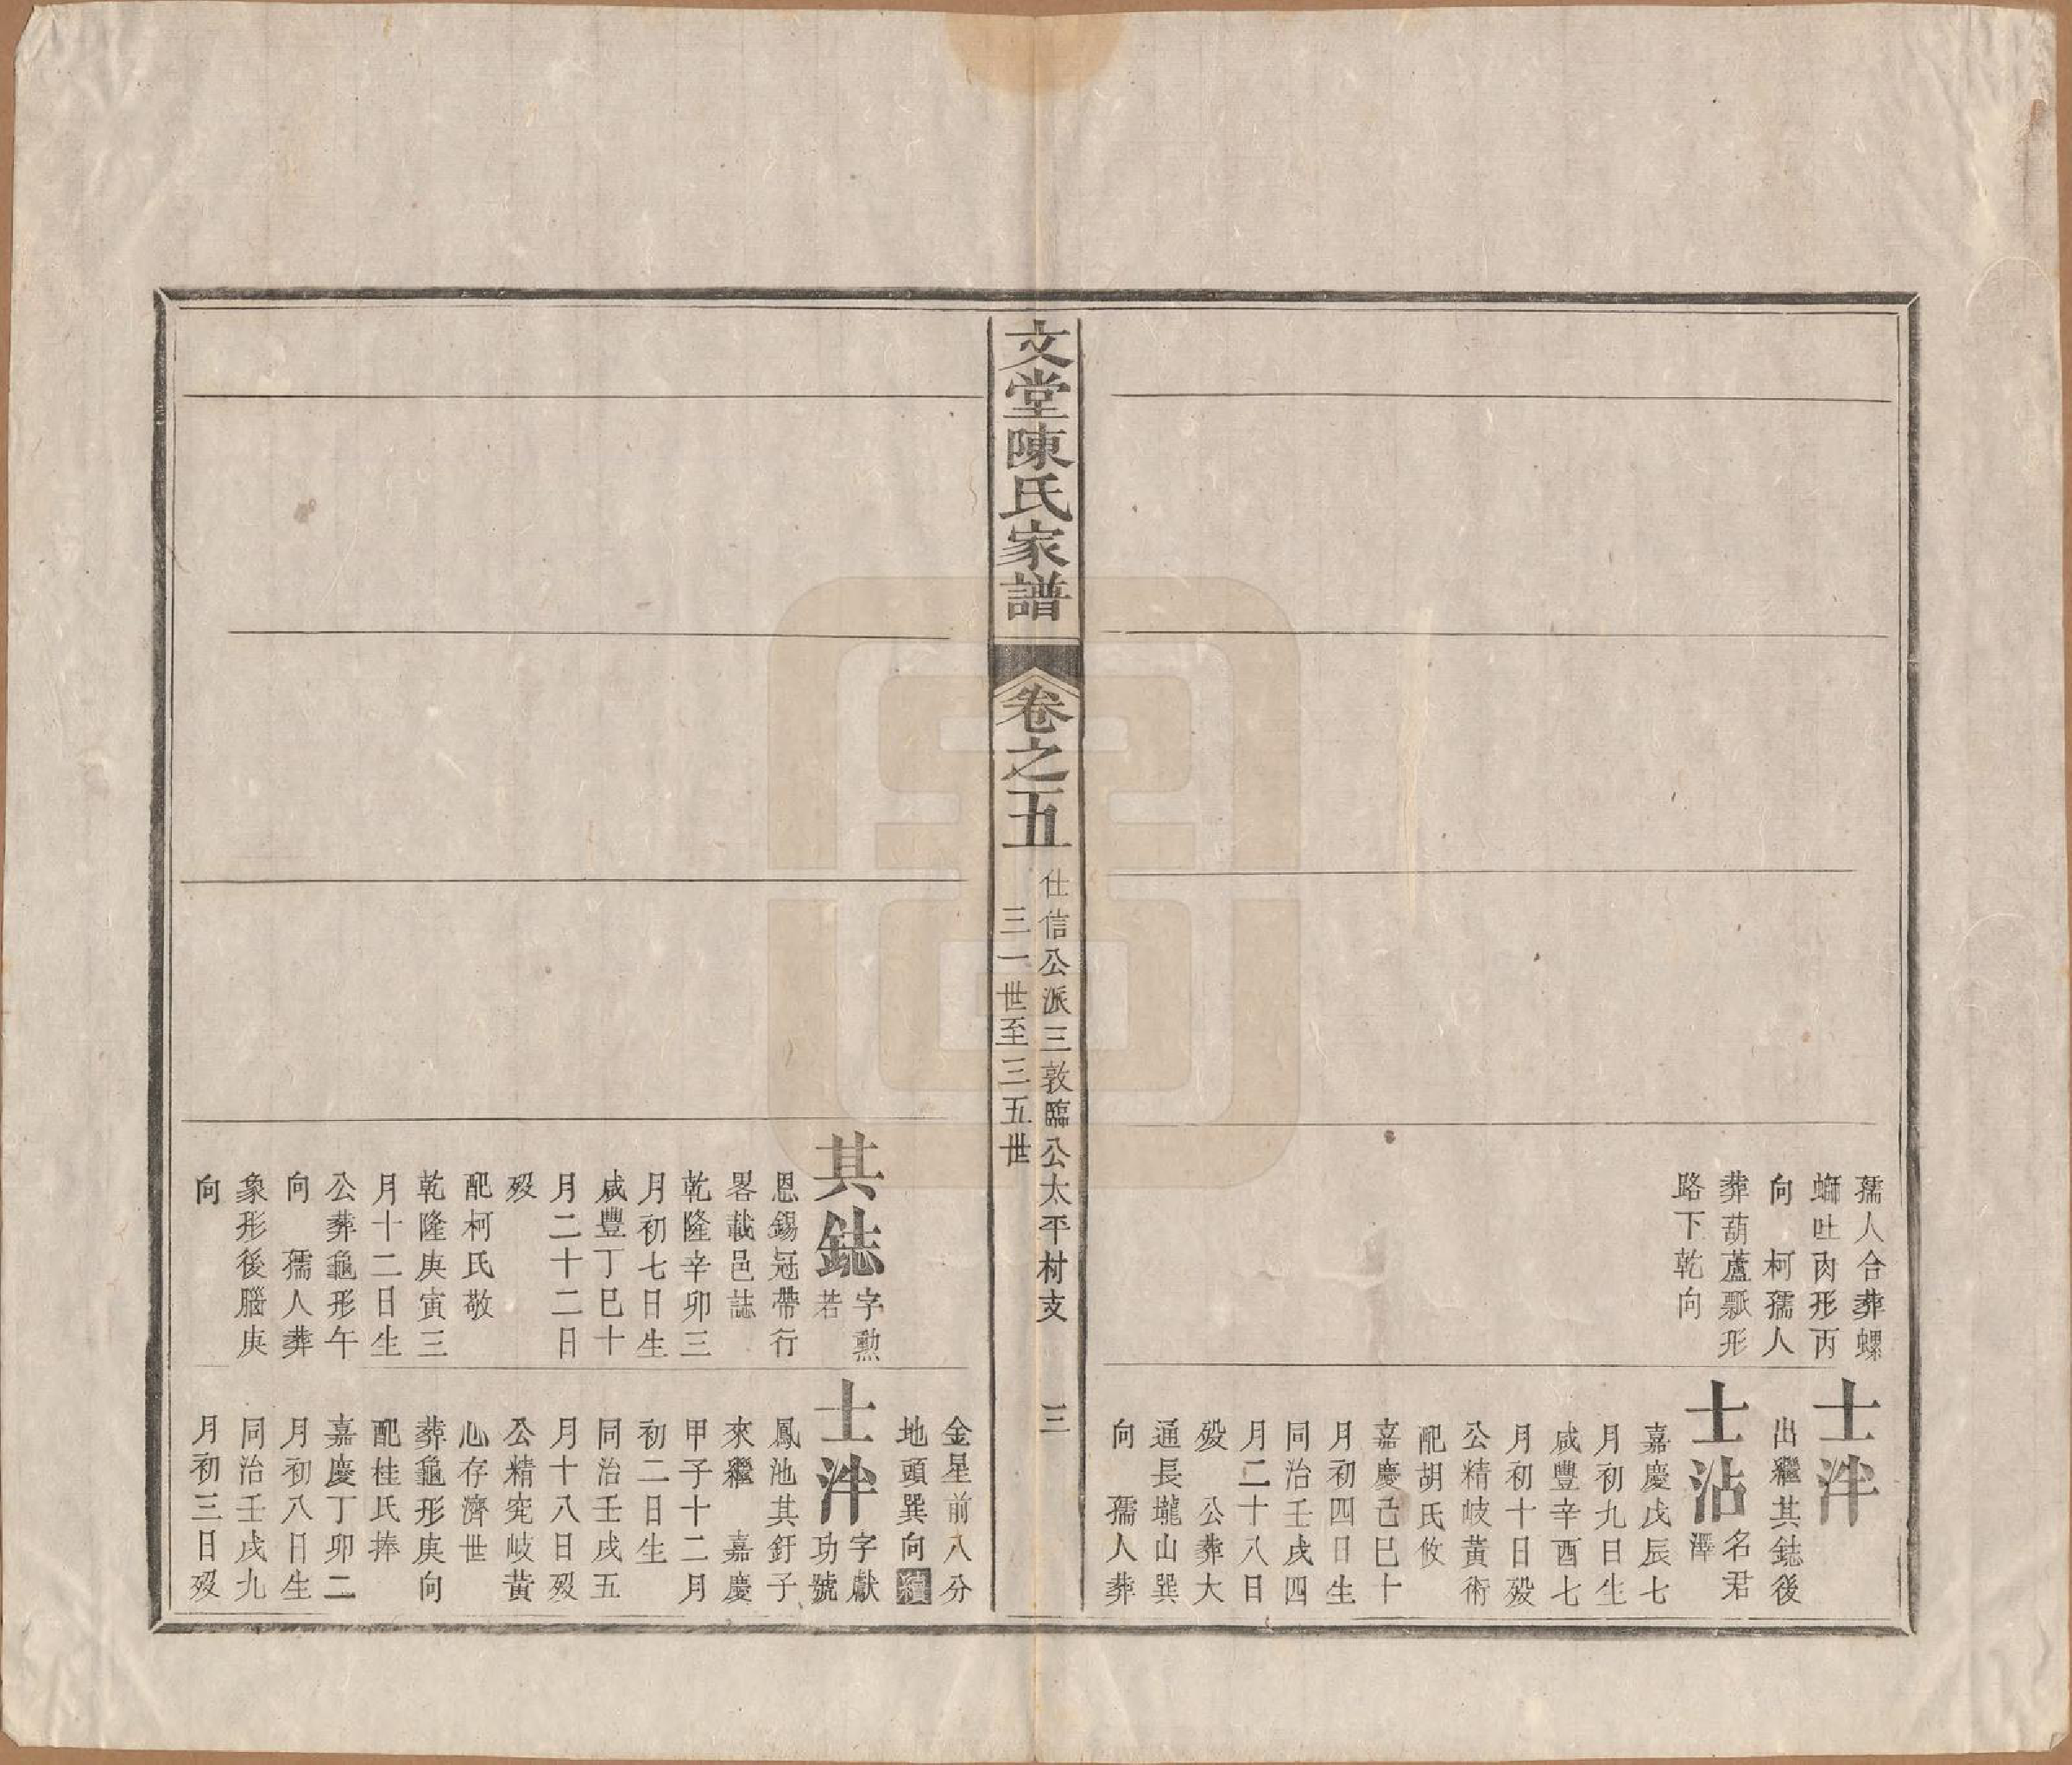 孺人合葬螺
螄吐肉形丙
向　柯孺人
葬葫蘆瓢形
路下乾向
士泮
出繼其鋕後
士沾名君
澤
嘉慶戊辰七
月初九日生
咸豐辛酉七
月初十日殁
公精岐黃術
配胡氏攸
嘉慶己巳十
月初四日生
同治壬戌四
月二十八日
殁　公葬大
通長壠山巽
向　孺人葬
文堂陳氏家譜
卷之五
仕信公派三敦臨公太平村支
三一世至三五世
三
其鋕字勲
若
恩錫冠帶行
畧載邑誌
乾隆辛卯三
月初七日生
咸豐丁巳十
月二十二日
殁
配柯氏敬
乾隆庚寅三
月十二日生
公葬龜形午
向　孺人葬
象形後腦庚
向
金星前八分
地頭巽向續
士泮字獻
功號
鳳池其釪子
來繼　嘉慶
甲子十二月
初二日生
同治壬戌五
月十八日殁
公精究岐黃
心存濟世
葬龜形庚向
配桂氏捧
嘉慶丁卯二
月初八日生
同治壬戌九
月初三日殁